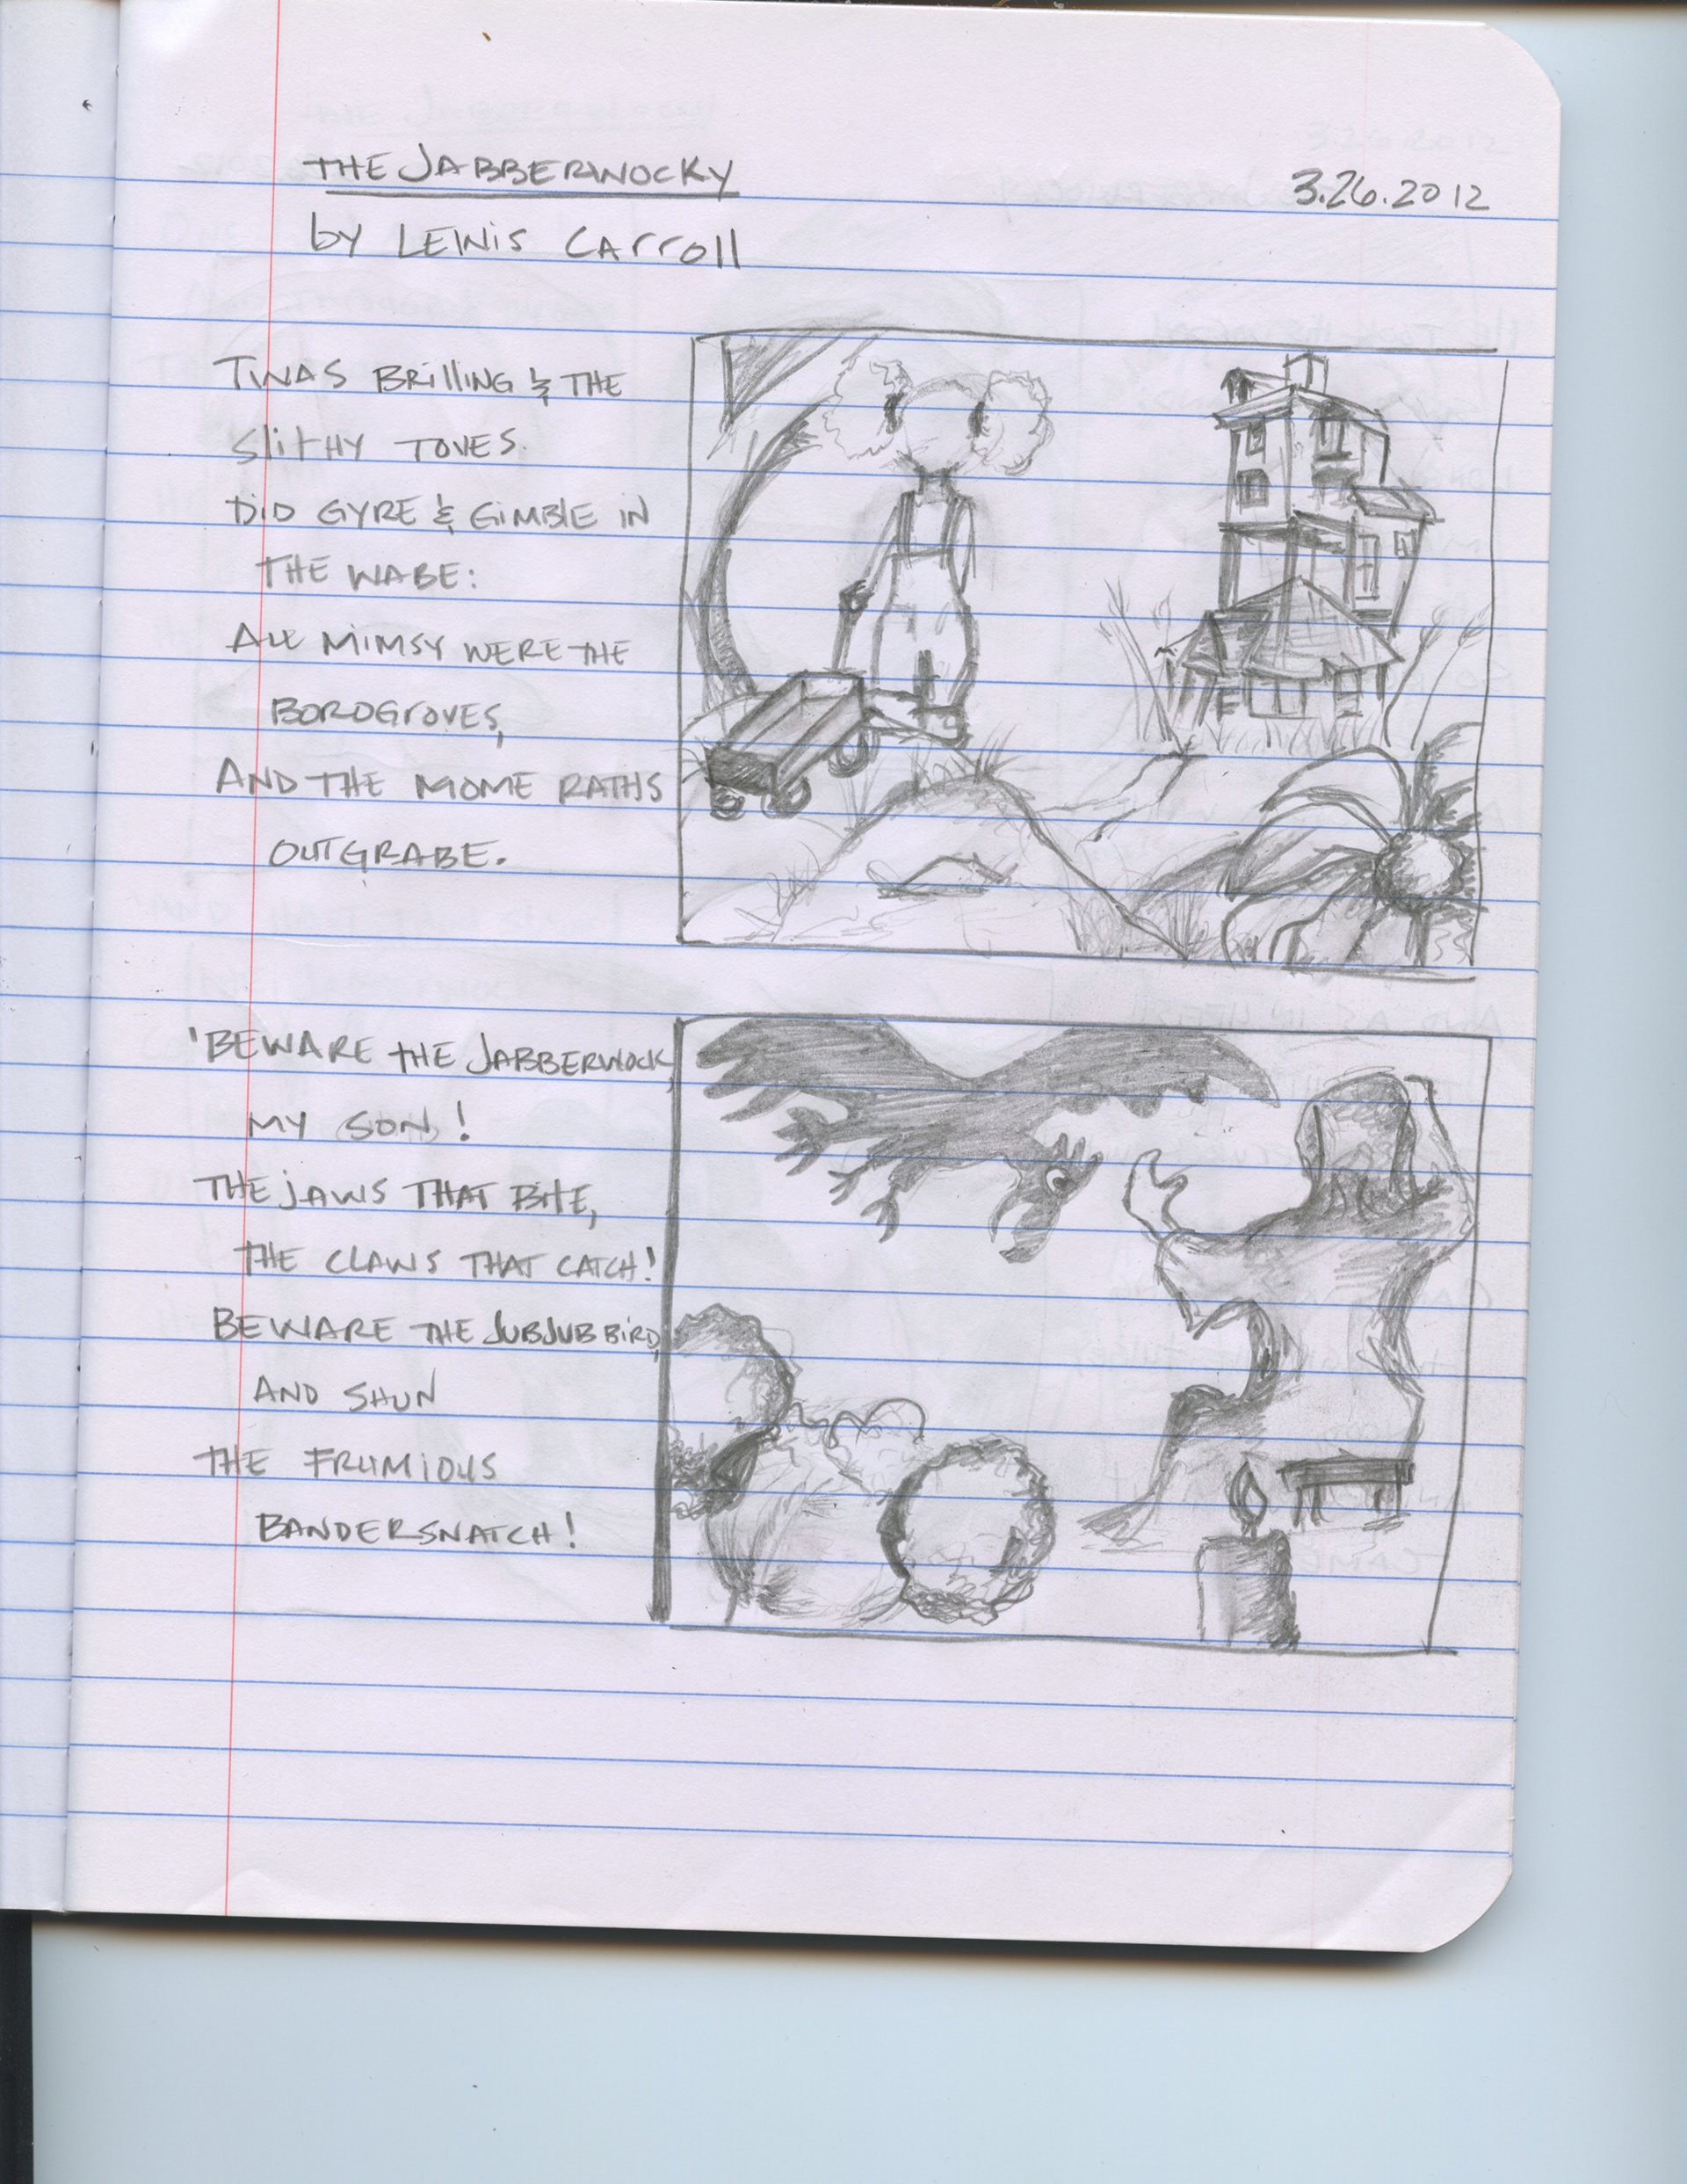 THE JABBERWOCKY
3.26.2012
by LEWIS CARROLL
TWAS BRILLING & THE
SLITHY TOVES.
DID GYRE & GIMBLE IN
THE WABE:
ALL MIMSY WERE THE
BOROGROVES,
AND THE MOME RATHS
OUTGRABE.
'BEWARE THE JABBERWOCK
MY SON,!
THE JAWS THAT BITE,
THE CLAWS THAT CATCH!
BEWARE THE JUBJUB BIRD,
AND SHUN
THE FRUMIOUS
BANDERSNATCH!